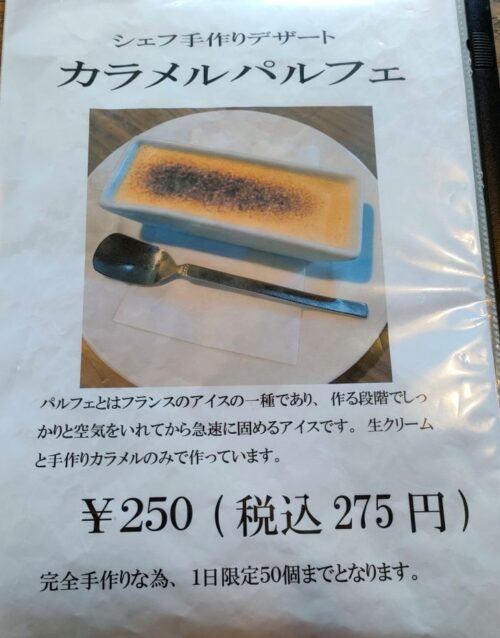 シェフ手作りデザート
カラメルパルフェ
パルフェとはフランスのアイスの一種であり、作る段階でしっ
かりと空気をいれてから急速に固めるアイスです。生クリーム
と手作りカラメルのみで作っています。
￥250（税込 275 円）
完全手作りな為、1日限定50個までとなります。